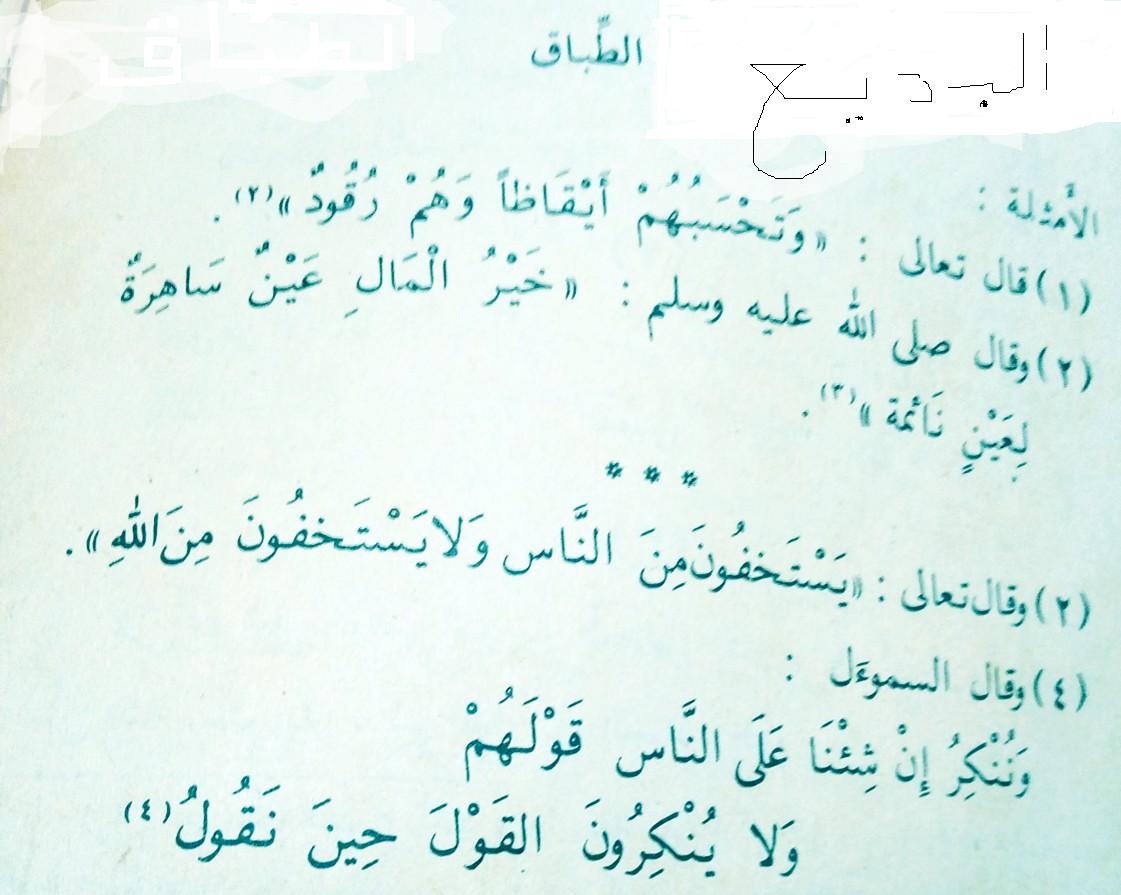 البديع
الطِّباق
الطباق
الأمثلة :
(١) قال تعالى : «وَتَحْسَبُهُمْ أَيْقَاظاً وَهُمْ رُقُودٌ»(٢).
(٢) وقال صلى الله عليه وسلم : «خَيْرُ الْمَالِ عَيْنٌ سَاهِرَةٌ
لِعَيْنٍ نَائمة»(٣).
* * *
(٢) وقال تعالى : «يَسْتَخفُونَ مِنَ النَّاس وَلا يَسْتَخفُونَ مِنَ اللهِ».
(٤) وقال السموءَل :
وَنُنْكِرُ إِنْ شِئْنَا عَلَى النَّاس قَوْلَهُمْ
وَلا يُنْكِرُونَ القَوْلَ حِينَ نَقُولُ(٤)